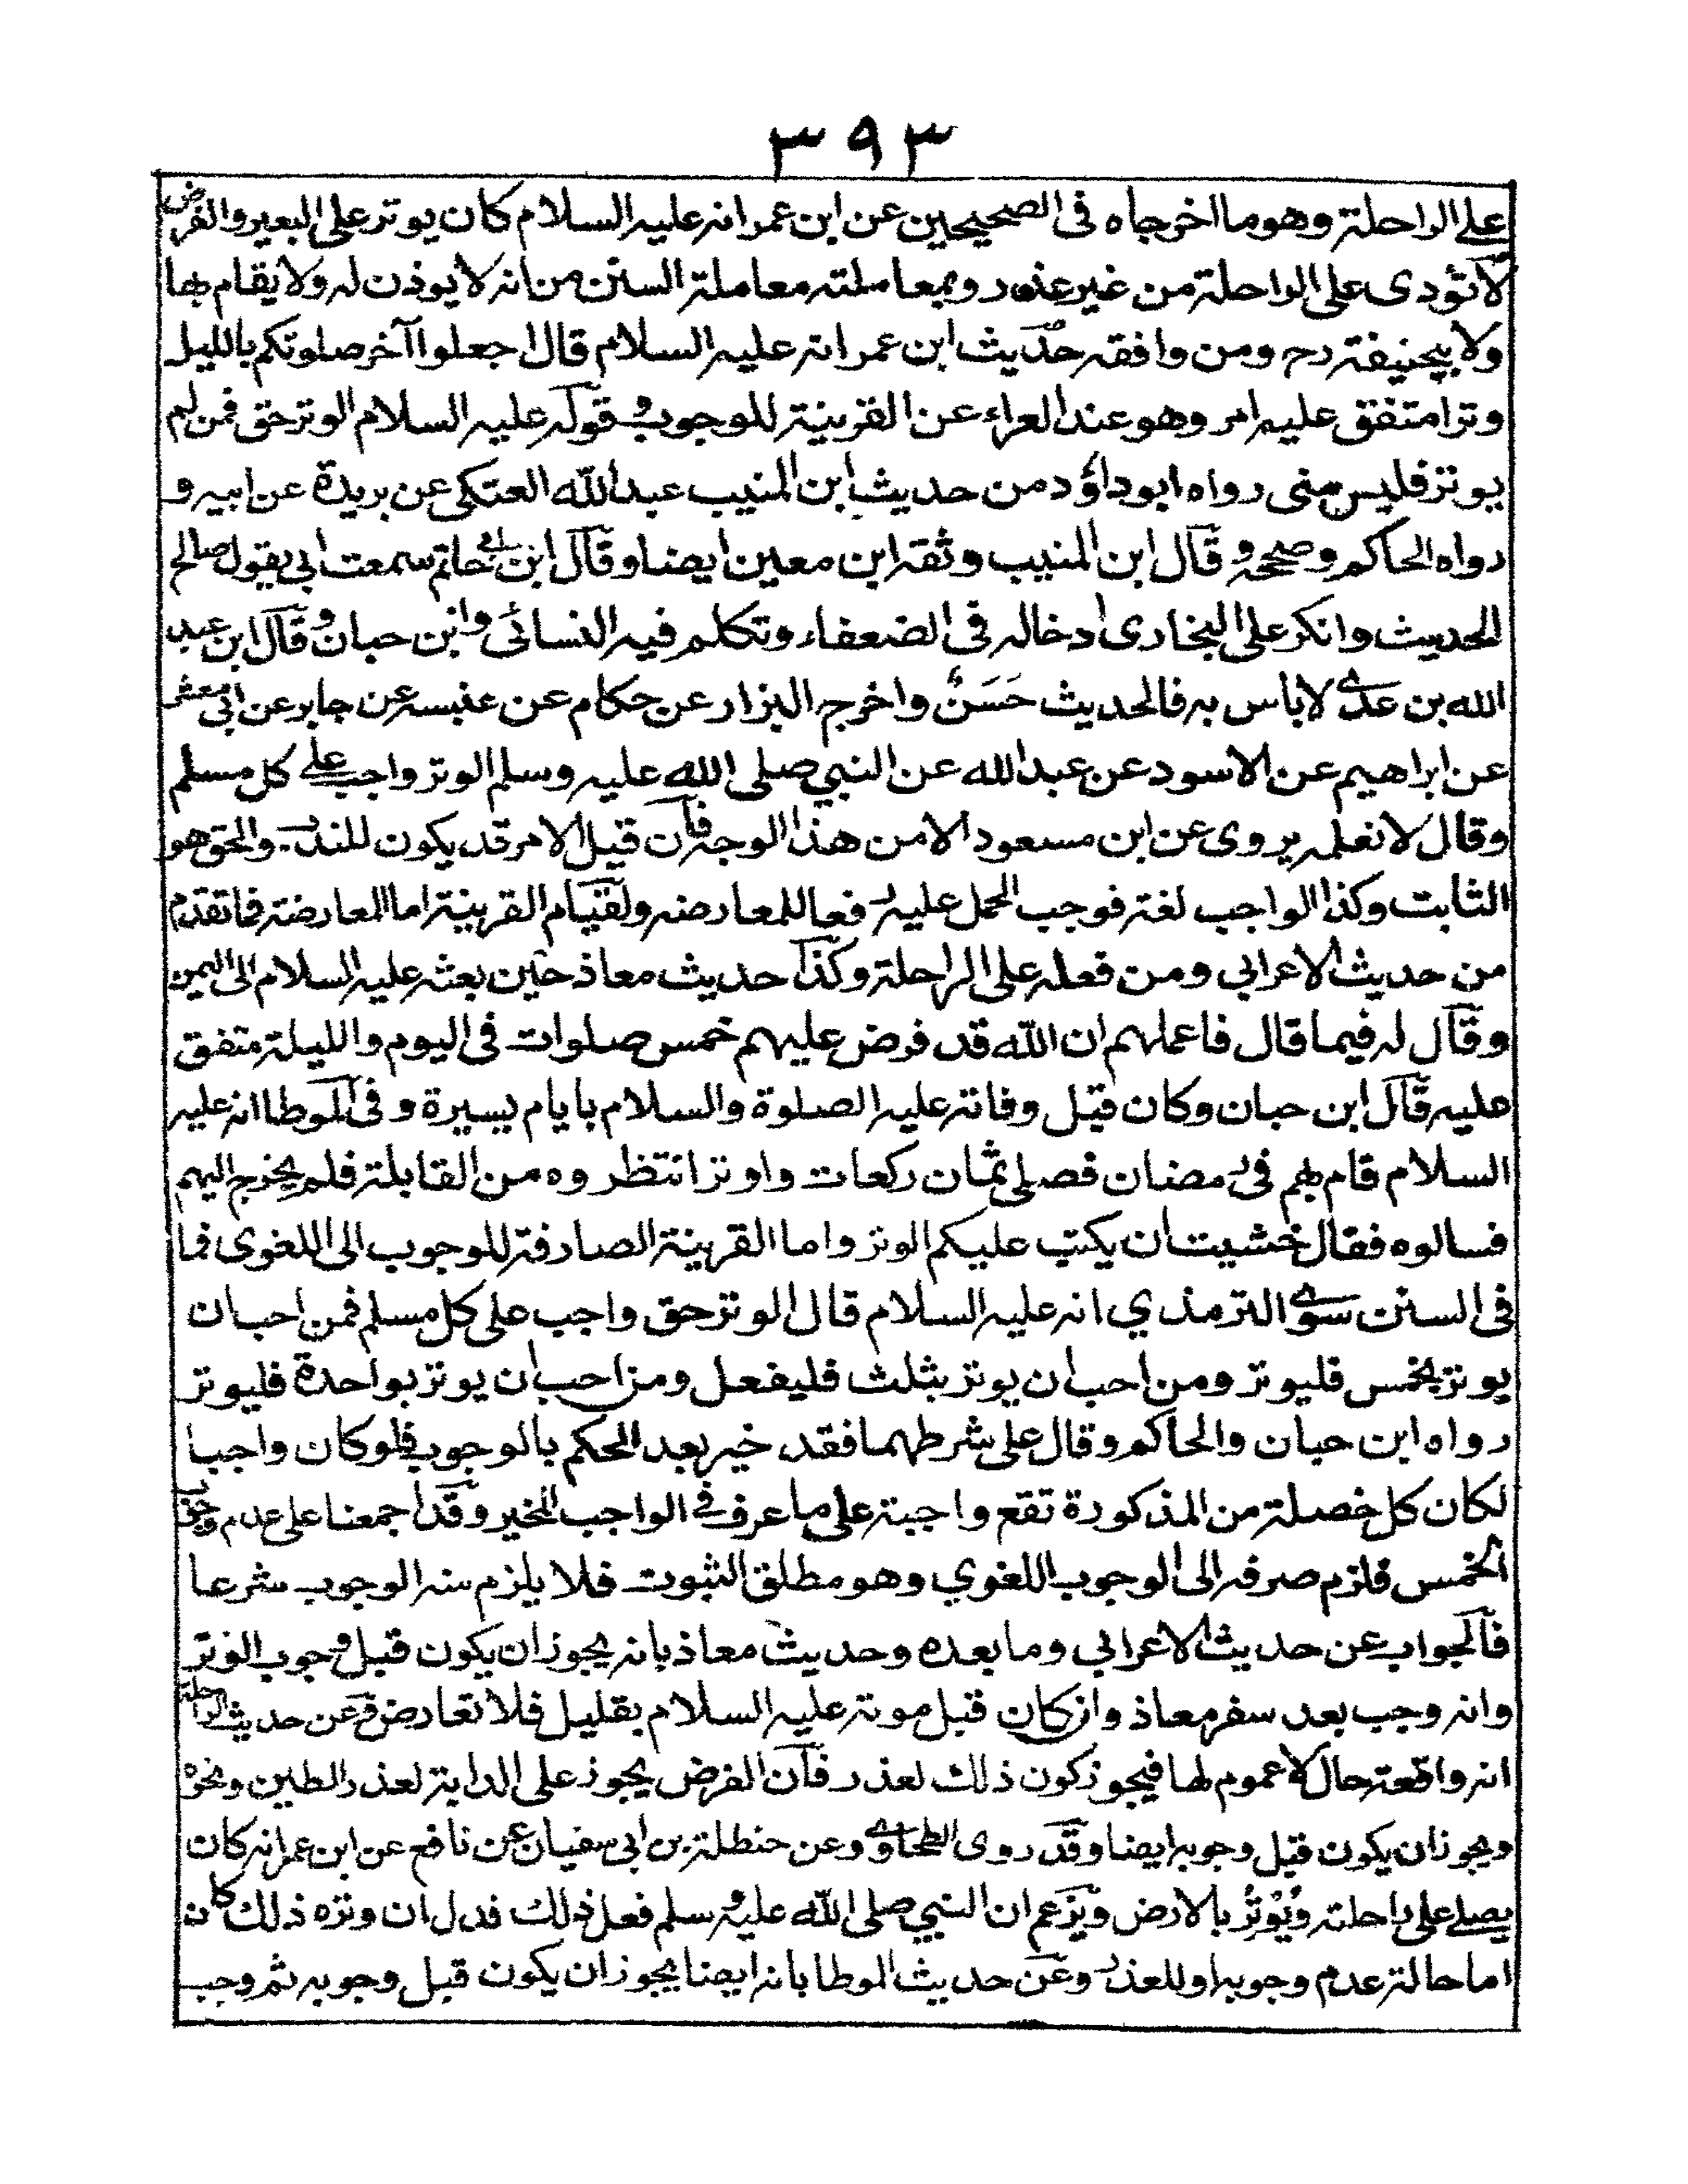 ٣٩٣
على الراحلة وهو ما اخرجاه فى الصحيحين عن ابن عمر انه عليه السلام كان يوتر على البعير والفرض
لا تؤدى على الراحلة من غير عذر وبمعاملته معاملة السنن من انه لا يوذن له ولا يقام بها
ولا بيحنيفة رح ومن وافقه حديث ابن عمر انه عليه السلام قال اجعلوا آخر صلوتكم بالليل
وترا متفق عليه امر وهو عند العراء عن القرينة للوجوب وقوله عليه السلام الوتر حق فمن لم
يوتر فليس منى رواه ابوداؤد من حديث ابن المنيب عبدالله العتكى عن بريدة عن ابيه و
رواه الحاكم وصححه وقال ابن المنيب وثقه ابن معين ايضا وقال ابن ابى حاتم سمعت ابي يقول صالح
الحديث وانكر على البخارى ادخاله فى الضعفاء وتكلم فيه النسائى وابن حبان وقال ابن عبد
الله بن عدى لا باس به فالحديث حَسَنٌ واخرج البزار عن حكام عن عنبسه عن جابر عن ابى معشر
عن ابراهيم عن الاسود عن عبدالله عن النبي صلى الله عليه وسلم الوتر واجب على كل مسلم
وقال لا نعلمه يروى عن ابن مسعود الا من هذا الوجه فان قيل الامر قد يكون للندب والحق هو
الثابت وكذا الواجب لغة فوجب الحمل عليه رفعا للمعارضه ولقيام القرينة اما المعارضة فما تقدم
من حديث الاعرابي ومن فعله على الراحلة وكذا حديث معاذ حين بعثه عليه السلام الى اليمن
وقال له فيما قال فاعلمهم ان الله قد فرض عليهم خمس صلوات فى اليوم والليلة متفق
عليه قال ابن حبان وكان قبل وفاته عليه الصلوة والسلام بايام يسيرة وفى الموطا انه عليه
السلام قام بهم فى رمضان فصلى ثمان ركعات واوتر انتظروه من القابلة فلم يخرج اليهم
فسالوه فقال خشيت ان يكتب عليكم الوتر واما القرينة الصارفة للوجوب الى اللغوى فما
فى السنن سوى الترمذي انه عليه السلام قال الوتر حق واجب على كل مسلم فمن احب ان
يوتر بخمس فليوتر ومن احب ان يوتر بثلث فليفعل ومن احب ان يوتر بواحدة فليوتر
رواه ابن حبان والحاكم وقال على شرطهما فقد خير بعد الحكم بالوجوب فلو كان واجبا
لكان كل خصلة من المذكورة تقع واجبة على ما عرف فى الواجب المخير وقد اجمعنا على عدم وجوب
الخمس فلزم صرفه الى الوجوب اللغوي وهو مطلق الثبوت فلا يلزم منه الوجوب شرعا
فالجواب عن حديث الاعرابي وما بعده وحديث معاذ بانه يجوز ان يكون قبل وجوب الوتر
وانه وجب بعد سفر معاذ وان كان قبل موته عليه السلام بقليل فلا تعارض وعن حديث الراحلة
انه واقعة حال لا عموم لها فيجوز كون ذلك لعذر فان الفرض يجوز على الدابة لعذر الطين ونحوه
ويجوز ان يكون قبل وجوبه ايضا وقد روى الطحاوى وعن حنظلة بن ابى سفيان عن نافع عن ابن عمر انه كان
يصلى على راحلته وَيُوتُر بالارض ويزعم ان النبي صلى الله عليه وسلم فعل ذلك فدل ان وتره ذلك كان
اما حالة عدم وجوبه او للعذر وعن حديث الموطا بانه ايضا يجوز ان يكون قبل وجوبه ثم وجب